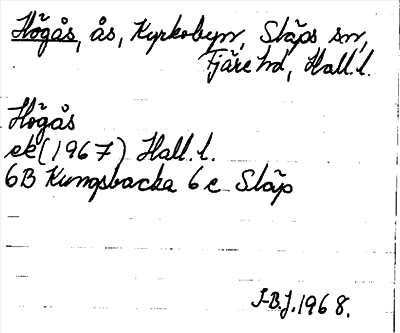 Högås, ås, Kyrkobyn, Släps sn,
Fjäre hd, Hall. l.
Högås
ek (1967) Hall. l.
6B Kungsbacka 6 c Släp
I-B.J. 1968.